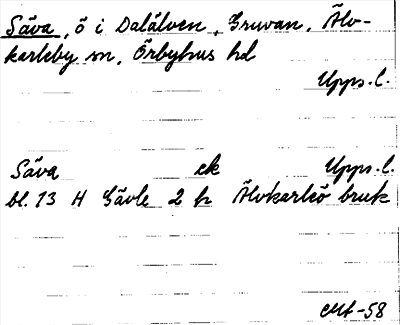 Säva, ö i Dalälven, Gruvan, Älv-
karleby sn, Örbyhus hd
Upps. l.
Säva ek Upps. l.
bl. 13 H Gävle 2 h Älvkarleö bruk
-58